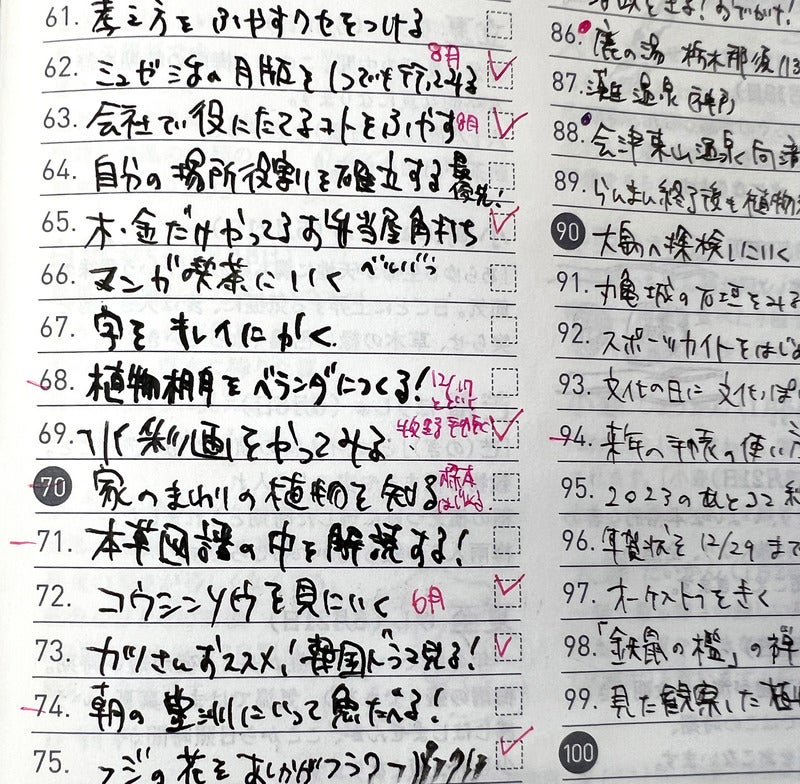 61. 考え方をふやすクセをつける
62. ミュゼ活の月版をいつでも 8月
63. 会社で役にたてるコトをふやす 8月
64. 自分の場所役割を確立する 最優先!
65. 木・金だけやってるお弁当屋角打ち
66. マンガ喫茶にいく
67. 字をキレイにかく.
68. 植物相身をベランダにつくる! 12/17
69. 水彩画をやってみる
70 家のまわりの植物を知る
71. 本草図譜の中を解読する!
72. コウシンソウを見にいく 6月
73. カツさんおススメ!韓国ドラマ見る!
74. 朝の
75. フジの花を
86. 鹿の湯 栃木那須
87. 温泉
88. 会津東山温泉 向瀧
89. らんまん終了後も植物
90 大島へ探検しにいく
91. 丸亀城の石垣をみる
92. スポーツカイトをはじ
93. 文化の日に文化
94. 来年の手帳の使い方
95. 2023のあと
96. 年賀状を12/29まで
97. オーケストラをきく
98. 「鉄鼠の檻」の禅
99. 見た観察した植
100